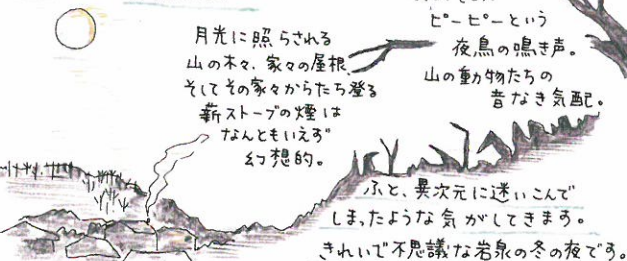 月光に照らされる
山の木々、家々の屋根、
そしてその家々からたち登る
薪ストーブの煙は
なんともいえず
幻想的。
ピーピーという
夜鳥の鳴き声。
山の動物たちの
音なき気配。
ふと、異次元に迷いこんで
しまったような気がしてきます。
きれいで不思議な岩泉の冬の夜です。